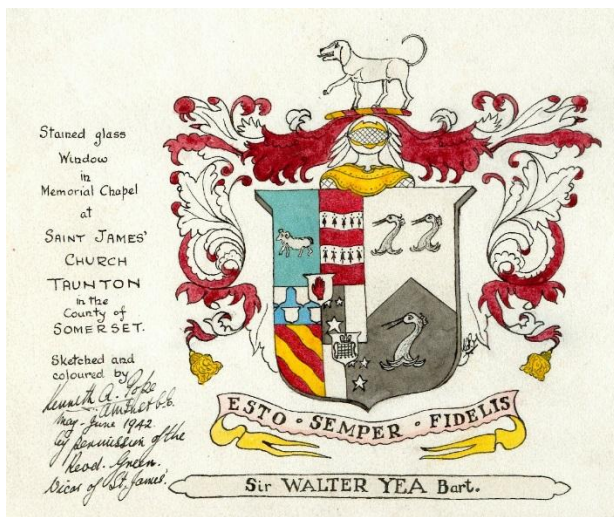 Stained glass
Window
in
Memorial Chapel
at
SAINT JAMES'
CHURCH
TAUNTON
in the
County of
SOMERSET.
Sketched and
coloured by
Kenneth A. Pope
May-June 1942
by permission of the
Revd. Green.
Vicar of St. James'.
ESTO · SEMPER · FIDELIS
Sir WALTER YEA Bart.